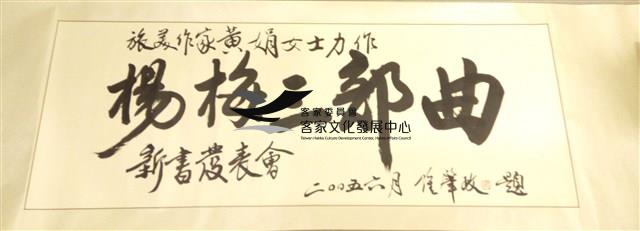 旅美作家黃娟女士力作
楊梅三部曲
客家委員會
客家文化發展中心
Taiwan Hakka Culture Development Center, Hakka Affairs Council
新書發表會
二〇〇五六月 鍾肇政 題